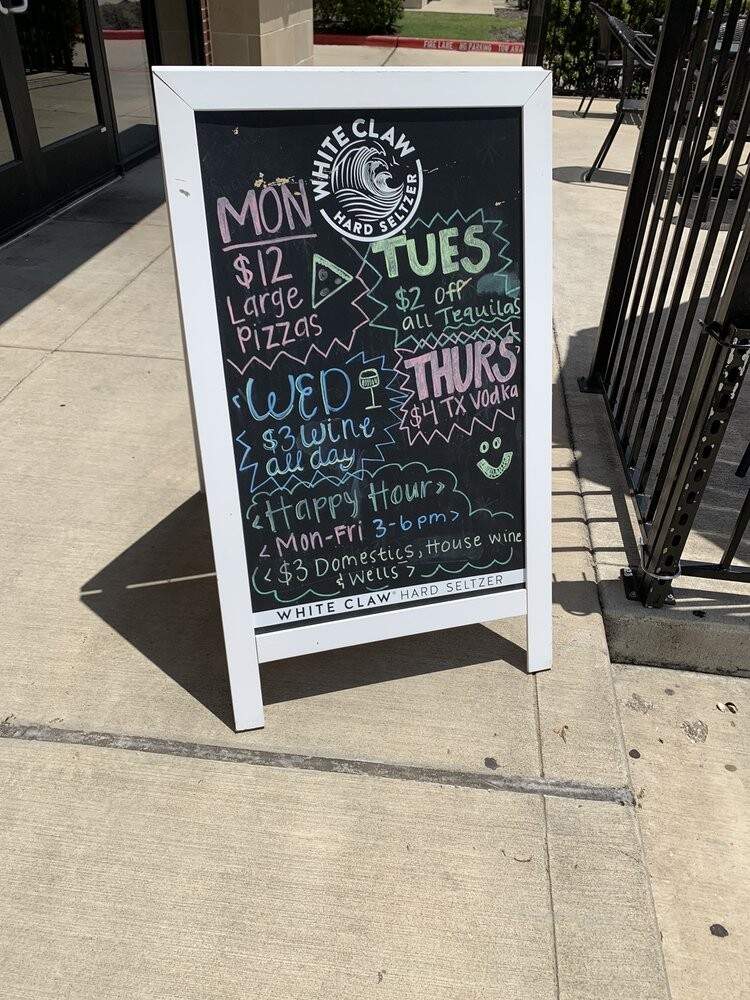 FIRE LANE NO PARKING TOW AWAY
WHITE CLAW
HARD SELTZER
MON
$12
Large
pizzas
TUES
$2 off
all Tequilas
WED
$3 wine
all day
THURS
$4 TX vodka
<Happy Hour>
< Mon-Fri 3-6pm>
<$3 Domestics, House wine
& Wells>
WHITE CLAW® HARD SELTZER